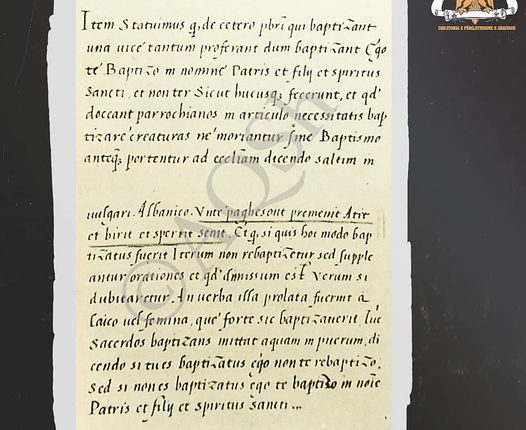 DREJTORIA E PËRGJITHSHME E ARKIVAVE
Item Statuimus q; de cetero pbri qui baptizant
una vice tantum proferant dum baptizant Ego
te Baptizo in nomine Patris et filij et spiritus
Sancti, et non ter Sicut hucusq; fecerunt, et qd'
doceant parrochianos in articulo necessitatis bap
tizare creaturas ne moriantur sine Baptismo
anteq; portentur ad eccliam dicendo saltim in
vulgari Albanico. Vnte paghesont premenit Atit
et birit et spertit senit. Et q, si quis hoc modo bap
tizatus fuerit Iterum non rebaptizetur sed supple
antur orationes et qd' dimissum est. Verum si
dubitaretur. An verba illa prolata fuerint à
Laico vel femina, que forte sic baptizaverit, tuc
Sacerdos baptizans mittat aquam in puerum, di
cendo si tu es baptizatus ego non te rebaptizo,
Sed si non es baptizatus ego te baptizo in noie
Patris et filij et spiritus Sancti...
© AQSH